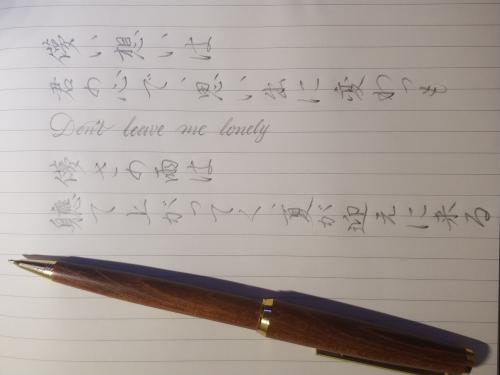 儚い想いは
君の心で、思い出に変わっも
Don't leave me lonely
儚さの雨は
軈て上がってく、夏が迎えに来る